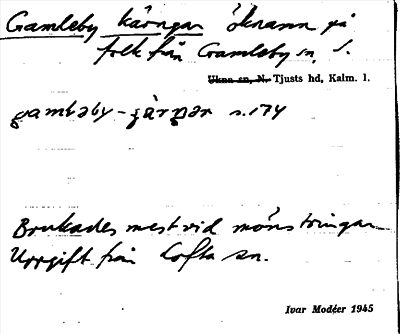 Gamleby käringar öknamn på
folk från Gamleby sn, S.
Ukna sn, N. Tjusts hd, Kalm. l.
gamləby-çärŋar s.174
Brukades mest vid mönstringar
Uppgift från Lofta sn.
Ivar Modéer 1945